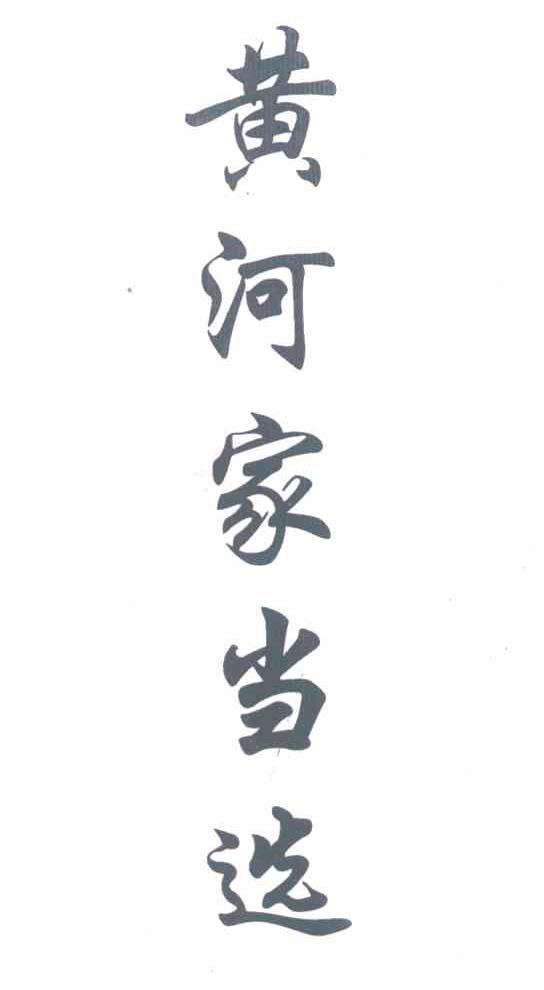 黄河家当选